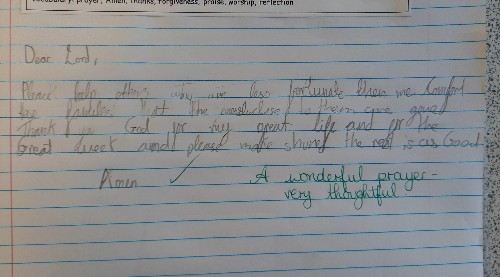 Vocabulary: prayer, Amen, thanks, forgiveness, praise, worship, reflection
Dear Lord,
Please help others why are less fortunate then me Comfort
the families that the
Thank you God for my great life and for the
Great and please make the rest is as Good
Amen
A wonderful prayer -
very thoughtful